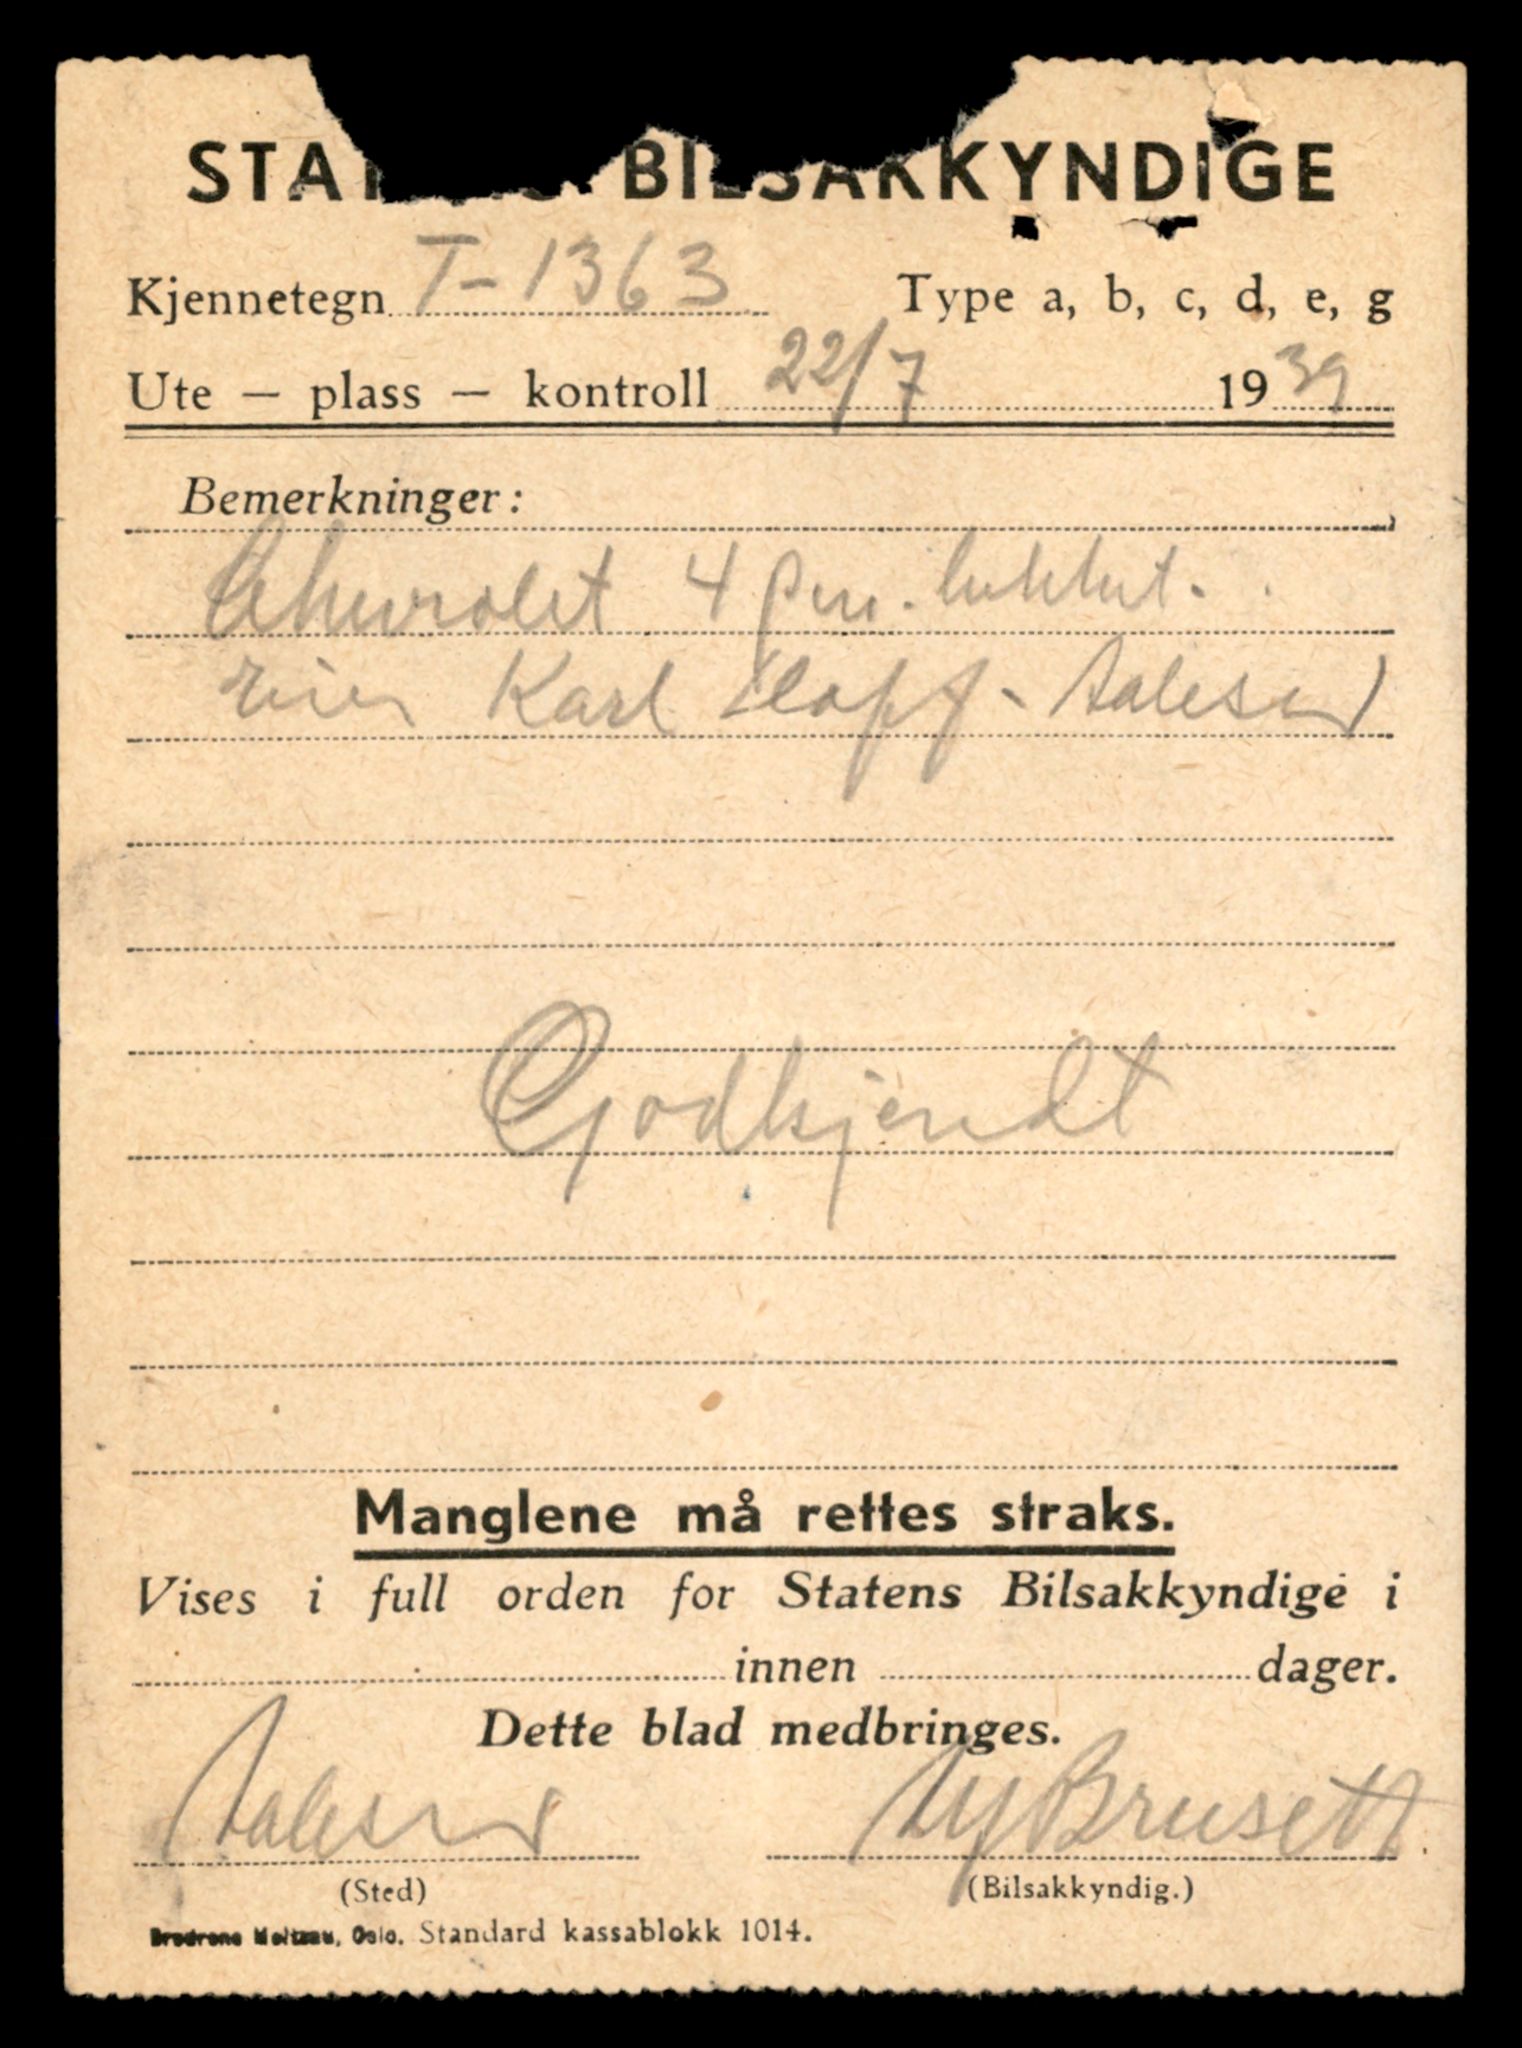 STATENS BILSAKKYNDIGE
Kjennetegn T-1363 Type a, b, c, d, e, g
Ute — plass — kontroll 22/7 1939
Bemerkninger:
Chevrolet 4 pers. lukket.
eier Karl - Aalesund
Godkjendt
Manglene må rettes straks.
Vises i full orden for Statens Bilsakkyndige i
innen dager.
Dette blad medbringes.
Aalesund Brusett
(Sted) (Bilsakkyndig.)
Brødrene Meltzau, Oslo. Standard kassablokk 1014.